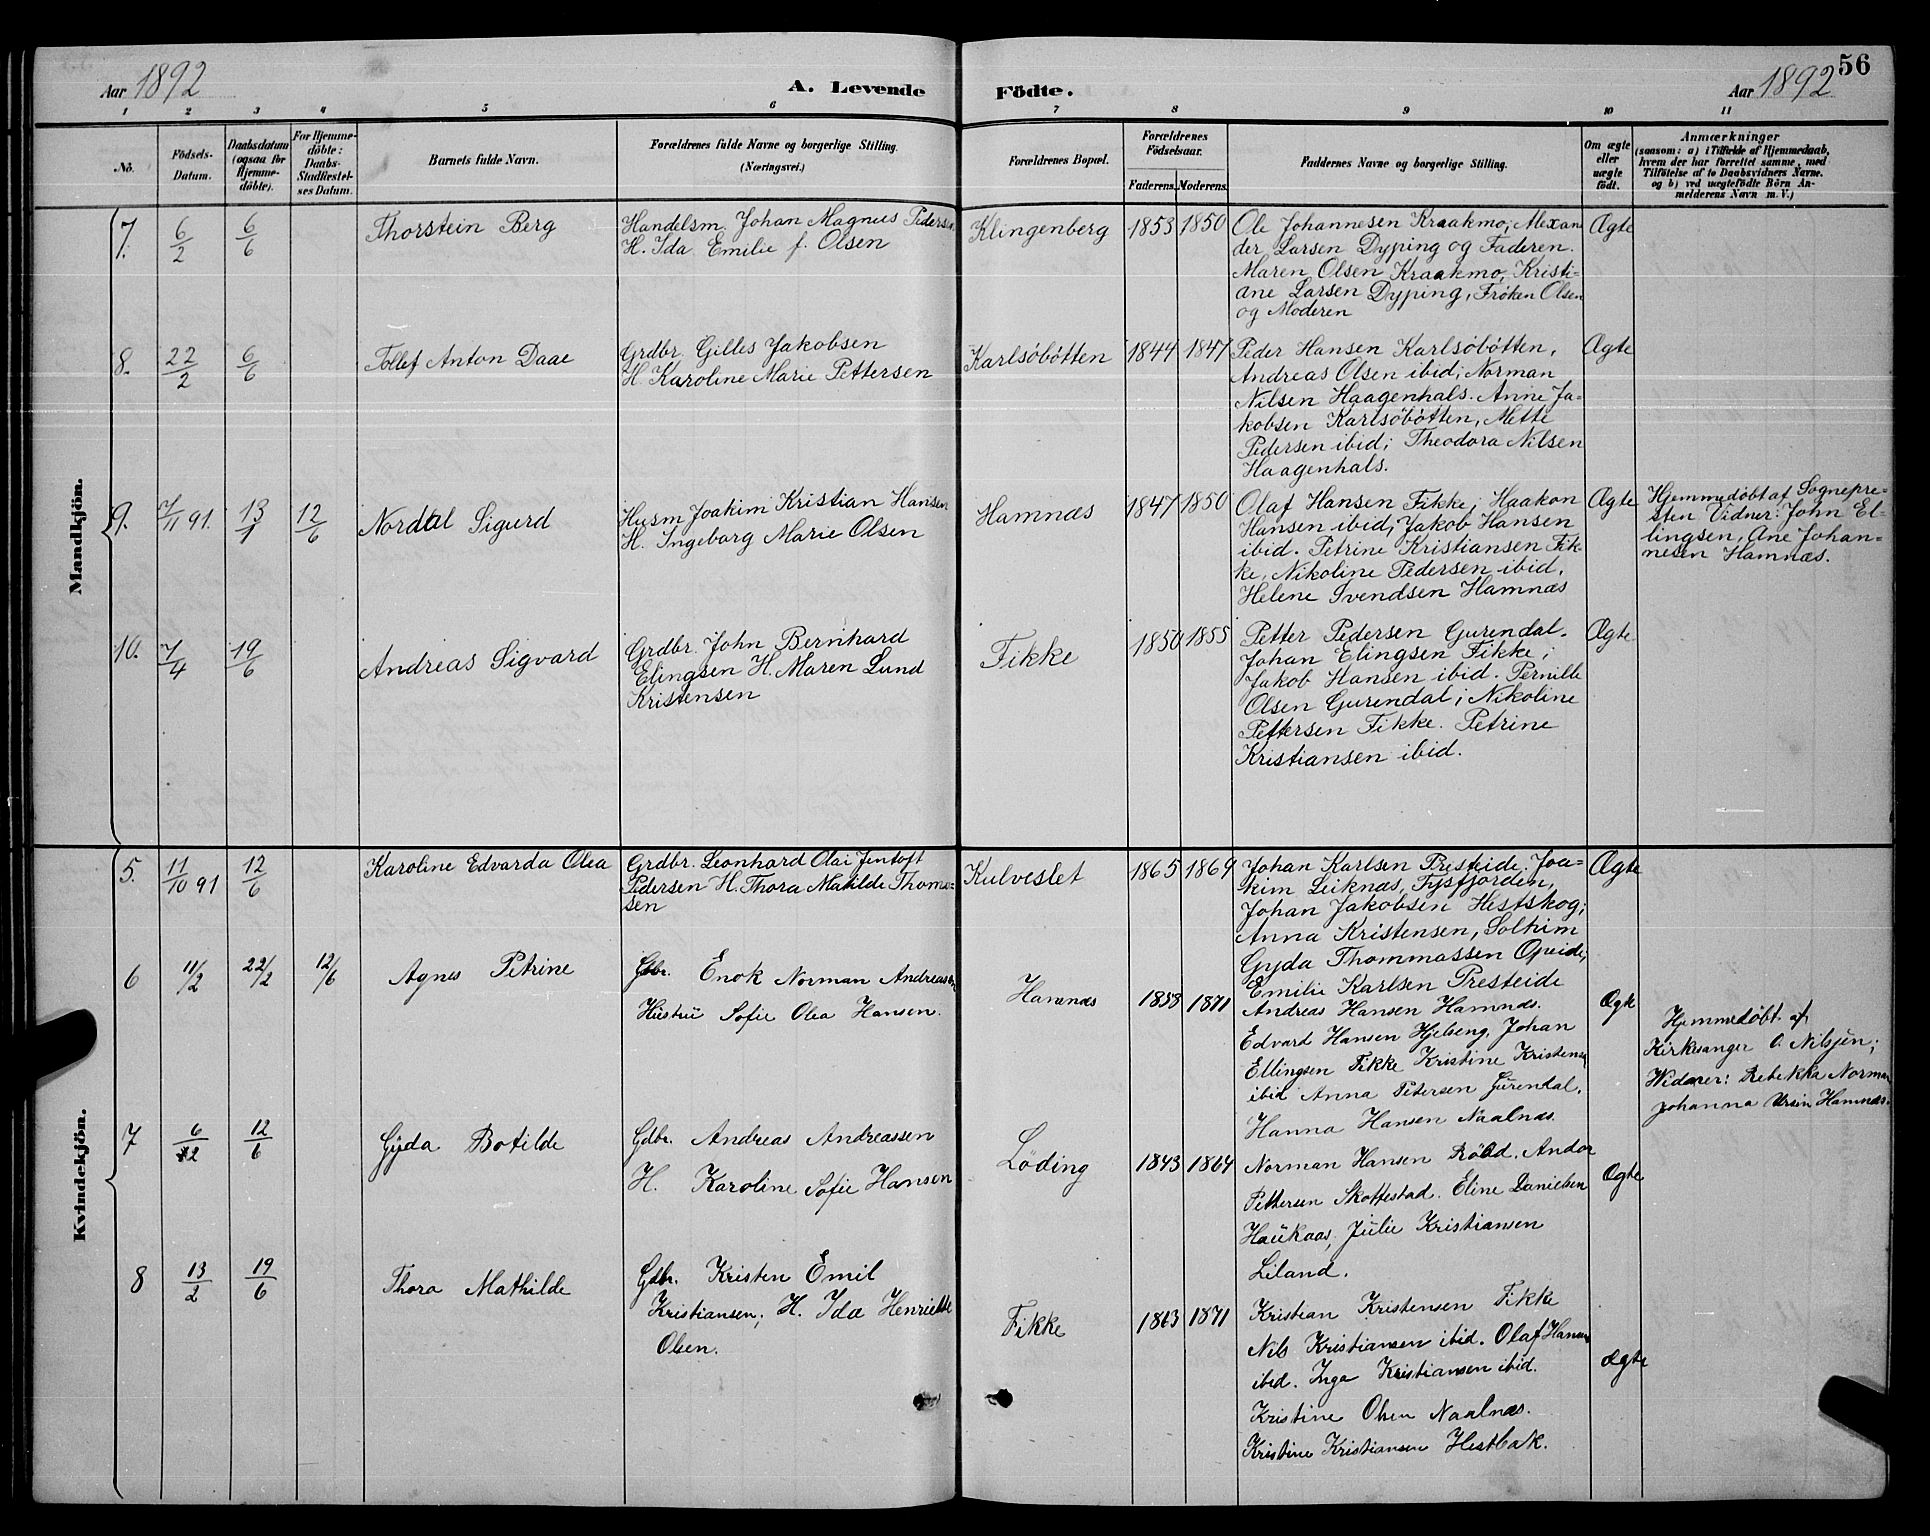 56
Aar 1892
A. Levende Födte.
Aar 1892
1 2 3 4 5 6 7 8 9 10 11
No.
Födsels-
Datum.
Daabsdatum
(ogsaa for
Hjemme-
döbte).
For Hjemme-
döbte:
Daabs-
Stadfæstel-
ses Datum.
Barnets fulde Navn.
Forældrenes fulde Navne og borgerlige Stilling.
(Næringsvei.)
Forældrenes Bopæl.
Forældrenes
Födselsaar.
Faderens. Moderens.
Faddernes Navne og borgerlige Stilling.
Om ægte
eller
uægte
födt.
Anmærkninger
(saasom: a) i Tilfælde af Hjemmedaab,
hvem der har forrettet samme, med
Tilföielse af to Daabsvidners Navne.
og b) ved uægtefödte Börn An-
melderens Navn m. V.)
Mandkjön.
7. 6/2 6/6 Thorstein Berg
Handelsm. Johan Magnus Pedersen
H. Ida Emilie f. Olsen
Klingenberg 1853 1850
Ole Johannesen Kraakmo, Alexan
der Larsen Dyping og Faderen.
Maren Olsen Kraakmo, Kristi-
ane Larsen Dyping, Frøken Olsen
og Moderen
Ægte
8. 22/2 6/6 Tollef Anton Daae
Grdbr. Gilles Jakobsen
H. Karoline Marie Pettersen
Karlsöbötten 1844 1847
Peder Hansen Karlsöbötten,
Andreas Olsen ibid; Norman
Nilsen Haagenhals. Anne Ja-
kobsen Karlsöbötten, Mette
Pedersen ibid; Theodora Nilsen
Haagenhals.
Ægte
9. 7/11 91. 13/1 12/6 Nordal Sigurd
Husm Joakim Kristian Hansen
H. Ingeborg Marie Olsen
Hamnæs 1847 1850
Olaf Hansen Fikke; Haakon
Hansen ibid; Jakob Hansen
ibid. Petrine Kristiansen Fik
ke, Nikoline Pedersen ibid,
Helene Svendsen Hamnæs
Ægte
Hjemmedöbt af Sognepre-
sten Vidner: John El-
lingsen, Ane Johan-
nesen Hamnæs.
10. 7/4 19/6 Andreas Sigvard
Grdbr. John Bernhard
Elingsen H. Maren Lund
Kristensen
Fikke 1850 1855
Petter Pedersen Gurendal.
Johan Elingsen Fikke;
Jakob Hansen ibid. Pernille
Olsen Gurendal; Nikoline
Pettersen Fikke. Petrine
Kristiansen ibid.
Ægte
Kvindekjön.
5. 11/10 91 12/6 Karoline Edvarda Olea
Grdbr. Leonhard Olai Jentoft
Pedersen H. Thora Matilde Thoma-
sen
Kulveslet 1865 1869
Johan Karlsen Presteide; Joa-
kim Leiknæs, Tysfjorden,
Johan Jakobsen Hestskog;
Anna Kristensen, Solheim
Gyda Thommassen Opeide;
Emilie Karlsen Presteide
Ægte
6 11/2 22/2 12/6 Agnes Petrine
Gdbr. Enok Norman Andreassen
Hustru Sofie Olea Hansen.
Hamnæs 1858 1871
Andreas Hansen Hamnæs.
Edvard Hansen Hjelseng, Johan
Ellingsen Fikke Kristine Kristensen
ibid Anna Petersen Gurendal,
Hanna Hansen Naalnæs.
Ægte
Hjemmedöbt af
Kirkesanger O. Nilsjen;
Widner: Rebekka Norman
Johanna Ursin Hamnæs.
7 6/2 12/6 Gyda Botilde
Gdbr. Andreas Andreassen
H. Karoline Sofie Hansen
Löding 1843 1864
Norman Hansen Röld, Andor
Pettersen Skottestad. Eline Danielsen
Haukaas, Julie Kristiansen
Liland.
Ægte
8 13/2 19/6 Thora Mathilde
Gdbr. Kristen Emil
Kristiansen; H. Ida Henriette
Olsen.
Fikke 1863 1871
Kristian Kristensen Fikke
Nils Kristiansen ibid. Olaf Hansen
ibid. Inga Kristiansen ibid.
Kristine Olsen Naalnæs.
Kristine Kristiansen Hestbak.
Ægte